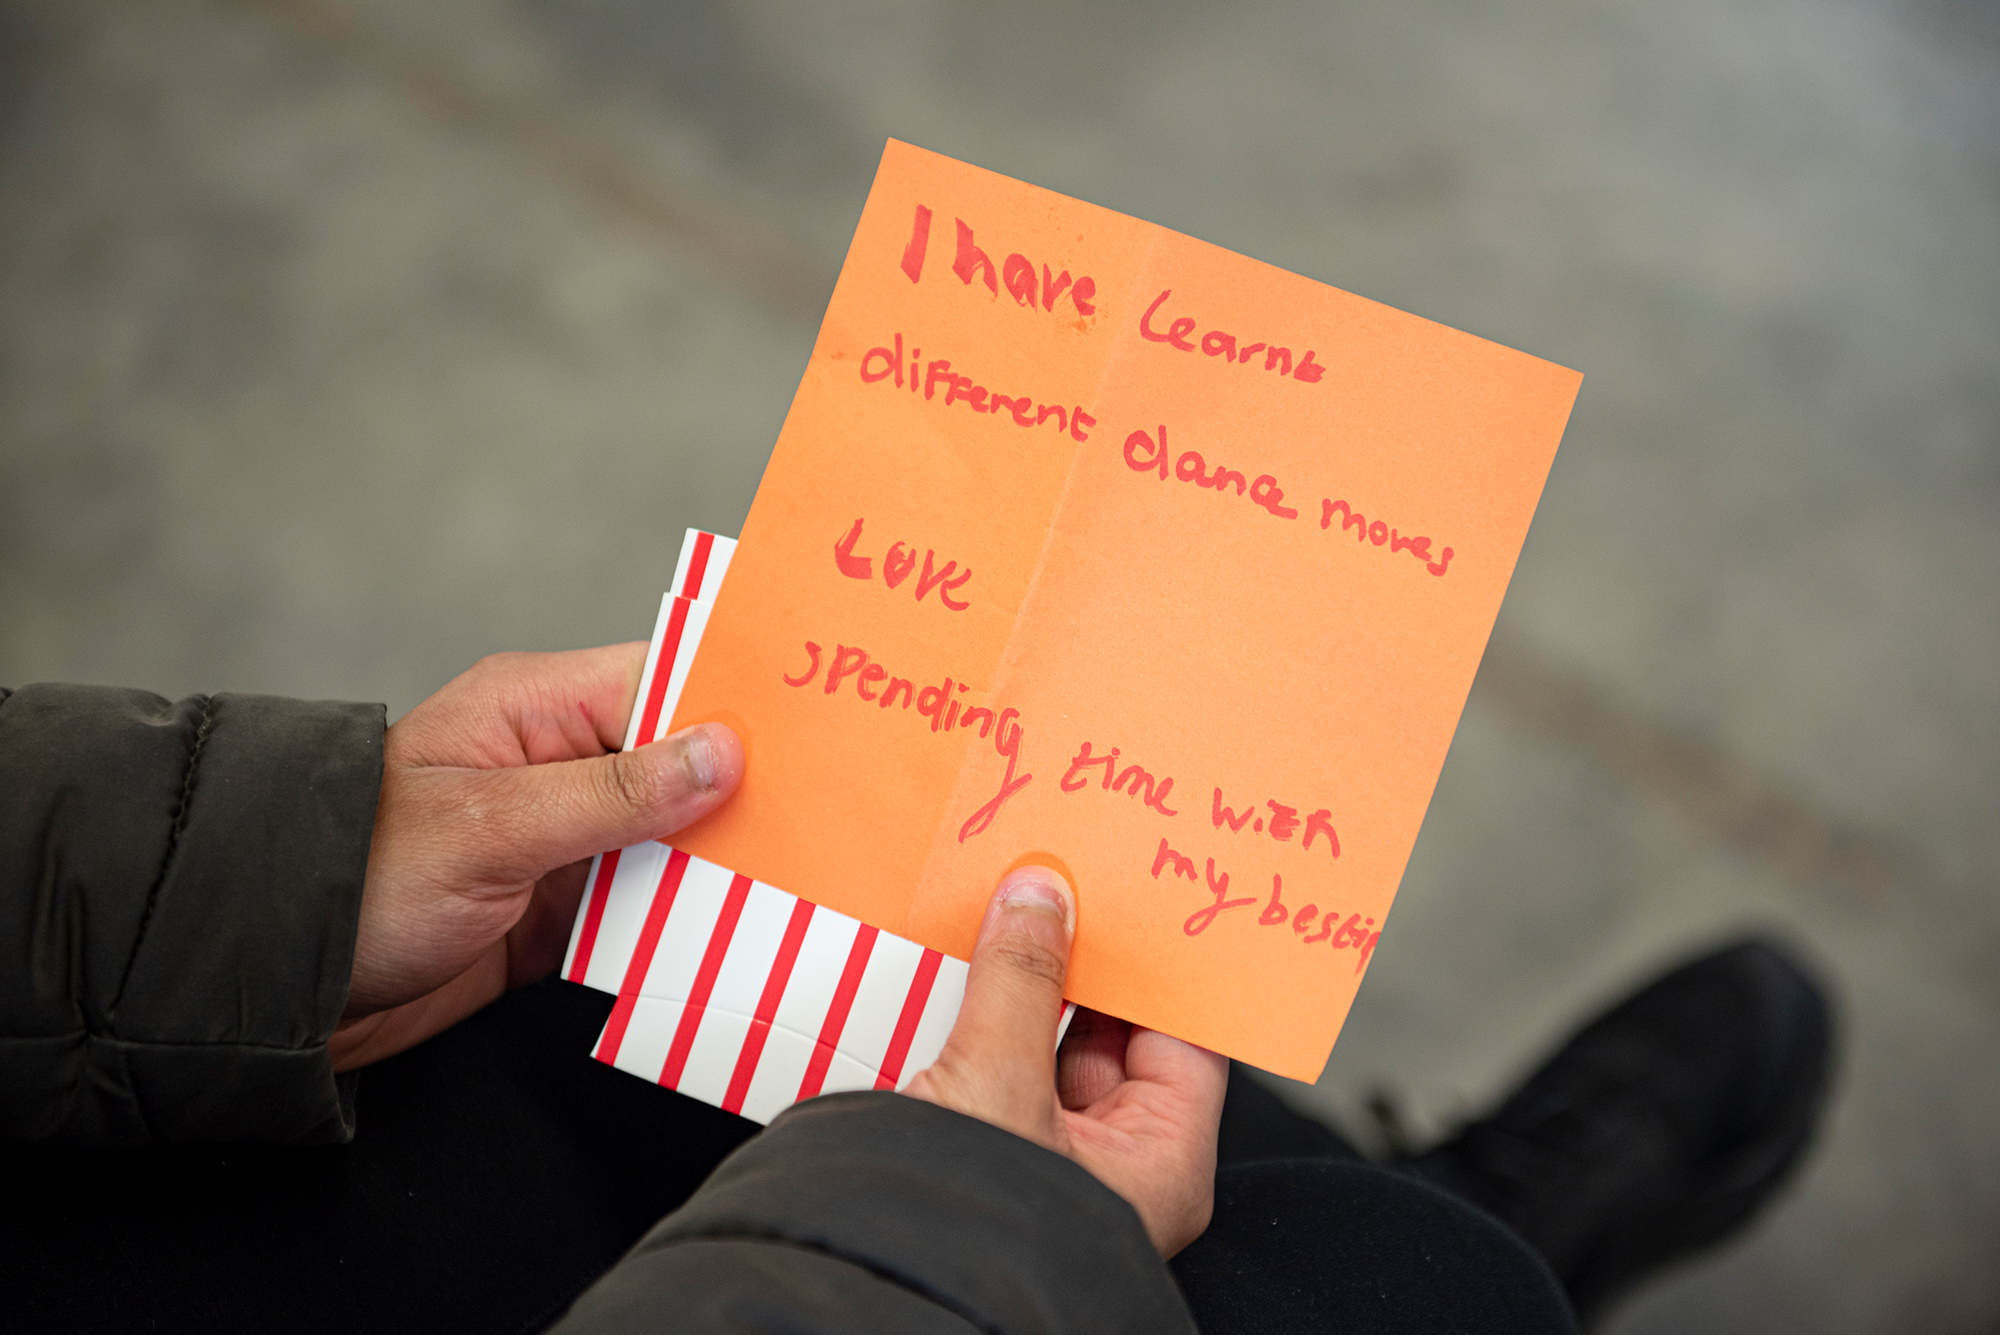 I have Learnt
different dance moves
Love
spending time with
my bestie